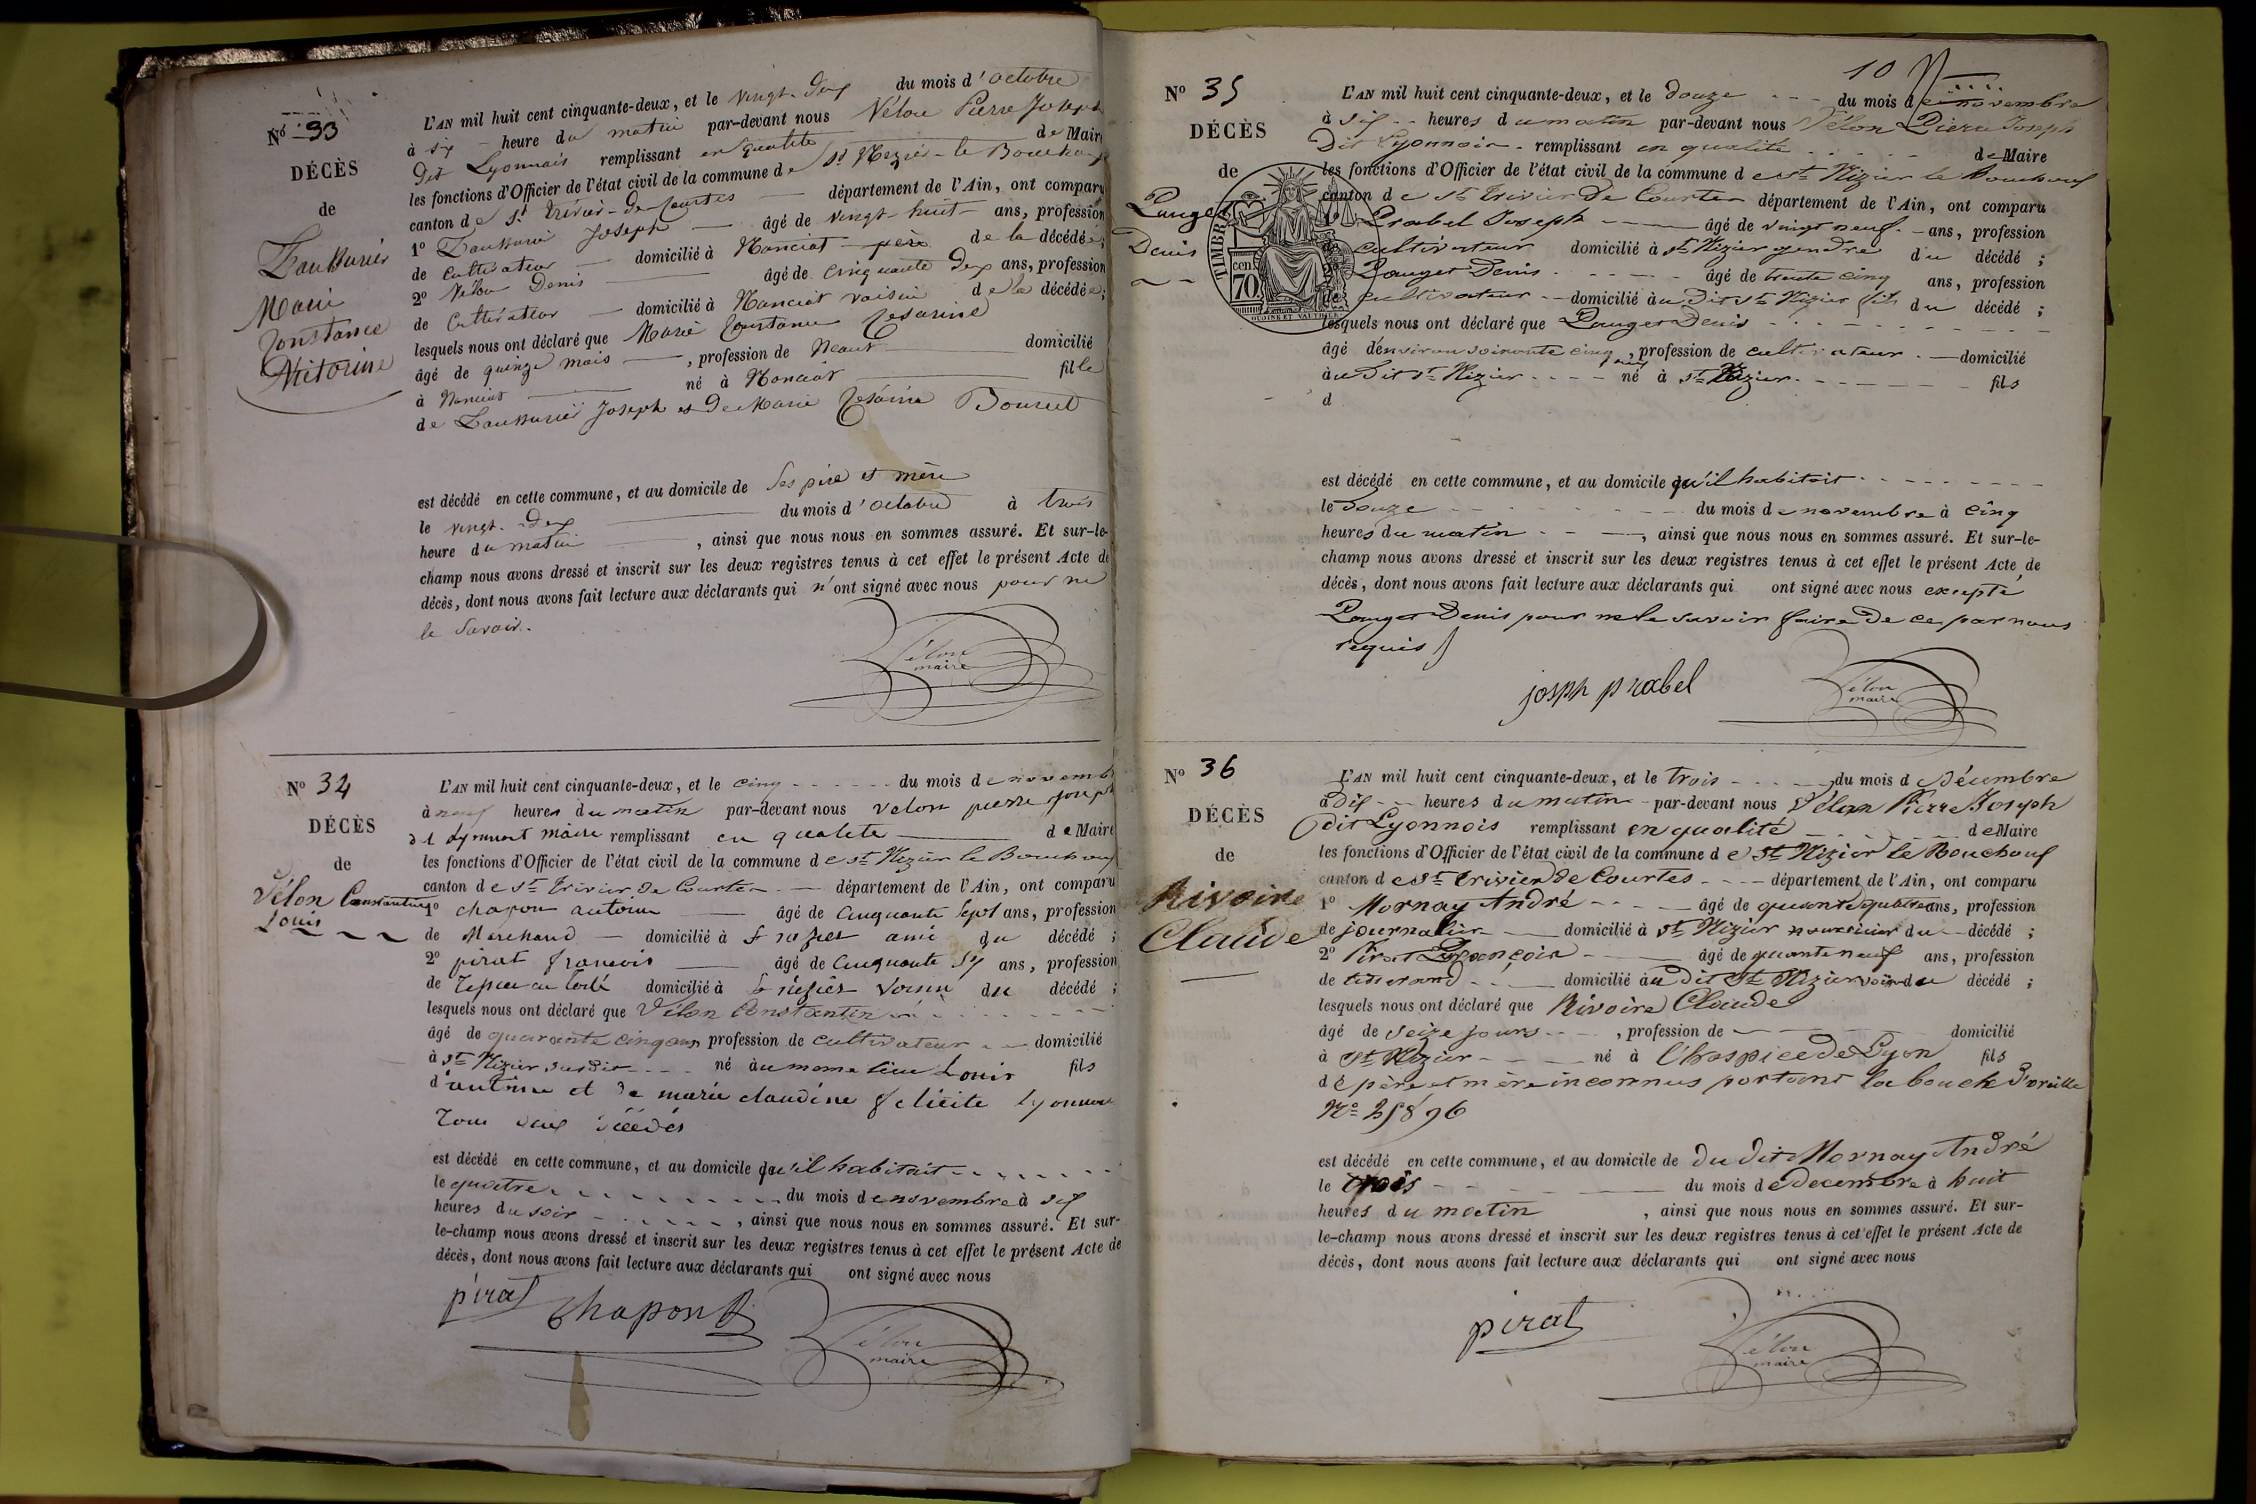 No 33
DÉCÈS
de
Marie
Constance
Victorine
L'AN mil huit cent cinquante-deux, et le vingt-deux du mois d'octobre
à six heure du matin par-devant nous Vélon Pierre Joseph
dit Lyonnais remplissant en qualité de Maire
les fonctions d'Officier de l'état civil de la commune de St Nizier-le-Bouchoux
canton de St Trivier-de-Courtes département de l'Ain, ont comparu
1º Joseph âgé de vingt-huit ans, profession
de cultivateur domicilié à Nanciat père de la décédée;
2º Vélon Denis âgé de cinquante deux ans, profession
de cultivateur domicilié à Nanciat voisin de la décédée;
lesquels nous ont déclaré que Marie Constance
âgé de quinze mois, profession de Neant domicilié
à Nanciat né à Nanciat fille
de Joseph et de Marie
est décédé en cette commune, et au domicile de Ses père et mère
le vingt-deux du mois d'octobre à trois
heure du matin, ainsi que nous nous en sommes assuré. Et sur-le-
champ nous avons dressé et inscrit sur les deux registres tenus à cet effet le présent Acte de
décès, dont nous avons fait lecture aux déclarants qui n'ont signé avec nous pour ne
le Savoir.
Vélon
maire
No 34
DÉCÈS
de
Vélon Constantin
Louis
L'AN mil huit cent cinquante-deux, et le cinq du mois de novembre
à neuf heures du matin par-devant nous velon pierre joseph
dit maire remplissant en qualite de Maire
les fonctions d'Officier de l'état civil de la commune de St Nizier le Bouchoux
canton de St Trivier de Courtes département de l'Ain, ont comparu
1º chapon antoine âgé de cinquante sept ans, profession
de Marchand domicilié à St nizier ami du décédé;
2º pirat francois âgé de cinquante six ans, profession
de domicilié à St nizier voisin du décédé;
lesquels nous ont déclaré que Vélon Constantin
âgé de quarante cinq ans profession de cultivateur domicilié
à St Nizier susdit né au meme lieu Louis fils
d'antoine et de marie claudine felicite
Tous deux décédés
est décédé en cette commune, et au domicile qu'il habitait
le quatre du mois de novembre à six
heures du soir, ainsi que nous nous en sommes assuré. Et sur-
le-champ nous avons dressé et inscrit sur les deux registres tenus à cet effet le présent Acte de
décès, dont nous avons fait lecture aux déclarants qui ont signé avec nous
pirat Chapon
Vélon
maire
10
No 35
DÉCÈS
de
Pauget
Denis
TIMBRE
70 cen.
OUDINÉ ET VAUTHIER
L'AN mil huit cent cinquante-deux, et le douze du mois de novembre
à six heures du matin par-devant nous Vélon Pierre Joseph
Dit Lyonnois remplissant en qualité de Maire
les fonctions d'Officier de l'état civil de la commune de St Nizier le Bouchoux
canton de St Trivier De Courtes département de l'Ain, ont comparu
1º Prabel Joseph âgé de vingt neuf ans, profession
de cultivateur domicilié à St Nizier gendre du décédé;
2º Pauget Denis âgé de trente cinq ans, profession
de cultivateur domicilié au Dit St Nizier fils du décédé;
lesquels nous ont déclaré que Pauget Denis
âgé d'environ soixante cinq ans, profession de cultivateur domicilié
au Dit St Nizier né à St Nizier fils
d
est décédé en cette commune, et au domicile qu'il habitoit
le Douze du mois de novembre à cinq
heures du matin, ainsi que nous nous en sommes assuré. Et sur-le-
champ nous avons dressé et inscrit sur les deux registres tenus à cet effet le présent Acte de
décès, dont nous avons fait lecture aux déclarants qui ont signé avec nous excepté
Pauget Denis pour ne le savoir faire De ce par nous
requis
josph prabel
Vélon
maire
No 36
DÉCÈS
de
Rivoire
Claude
L'AN mil huit cent cinquante-deux, et le trois du mois de Décembre
à Dix heures du matin par-devant nous Vélon Pierre Joseph
dit Lyonnois remplissant en qualité de Maire
les fonctions d'Officier de l'état civil de la commune de St Nizier le Bouchoux
canton de St Trivier de Courtes département de l'Ain, ont comparu
1º Mornay André âgé de quarante quatre ans, profession
de journalier domicilié à St Nizier nourricier du décédé;
2º Pirat François âgé de quarante neuf ans, profession
de tisserand domicilié au dit St Nizier voisin du décédé;
lesquels nous ont déclaré que Rivoire Claude
âgé de seize jours, profession de domicilié
à St Nizier né à l'hospice de Lyon fils
de père et mère inconnus portant la boucle D'oreille
No 25896
est décédé en cette commune, et au domicile de du dit Mornay André
le trois du mois de Decembre à huit
heures du matin, ainsi que nous nous en sommes assuré. Et sur-
le-champ nous avons dressé et inscrit sur les deux registres tenus à cet effet le présent Acte de
décès, dont nous avons fait lecture aux déclarants qui ont signé avec nous
pirat
Vélon
maire